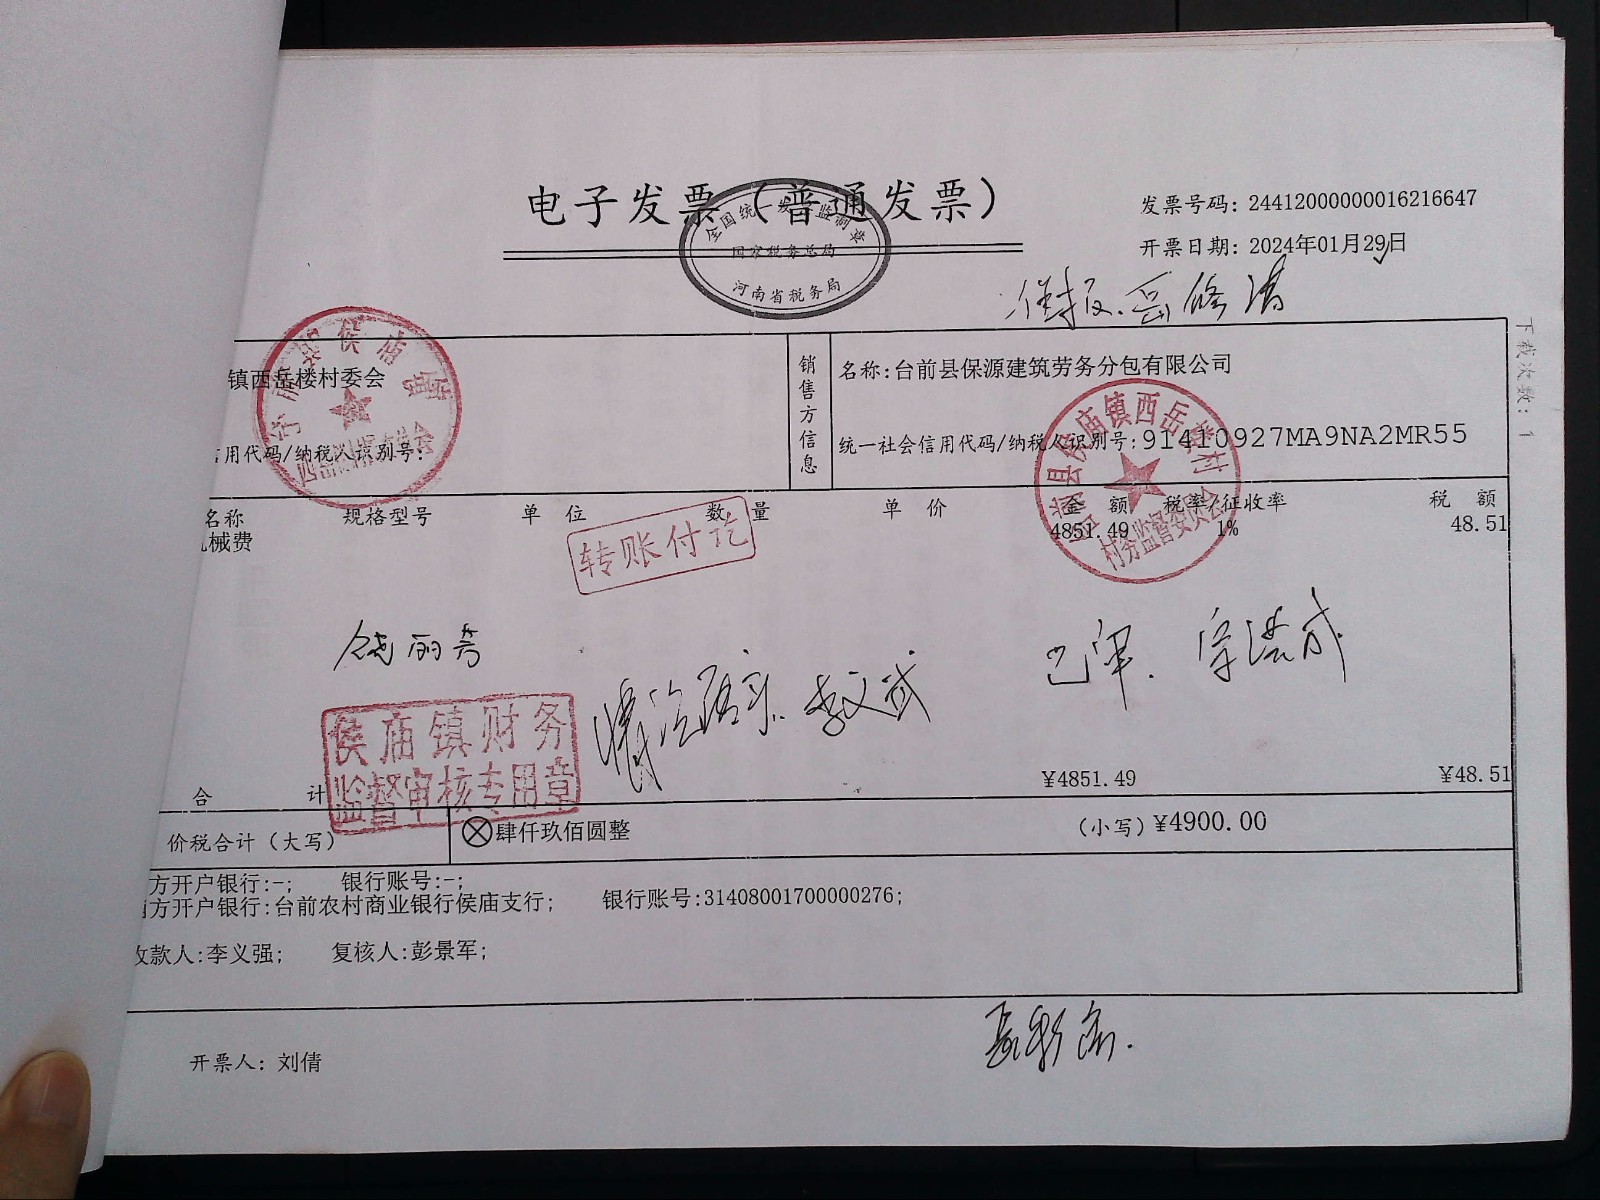 电子发票（普通发票）
全国统一发票监制章
国家税务总局
河南省税务局
发票号码：24412000000016216647
开票日期：2024年01月29日
下载次数：1
镇西岳楼村委会
信用代码/纳税人识别号：
销售方信息
名称：台前县保源建筑劳务分包有限公司
统一社会信用代码/纳税人识别号：91410927MA9NA2MR55
台前县侯庙镇西岳楼村
村务监督委员会
名称 规格型号 单位 数量 单价 金额 税率/征收率 税额
机械费 4851.49 1% 48.51
转账付讫
饶丽芳
李文武
侯庙镇财务
监督审核专用章
合计 ¥4851.49 ¥48.51
价税合计（大写） ⊗肆仟玖佰圆整 （小写）¥4900.00
方开户银行:-; 银行账号:-;
方开户银行:台前农村商业银行侯庙支行; 银行账号:31408001700000276;
收款人:李义强; 复核人:彭景军;
开票人：刘倩